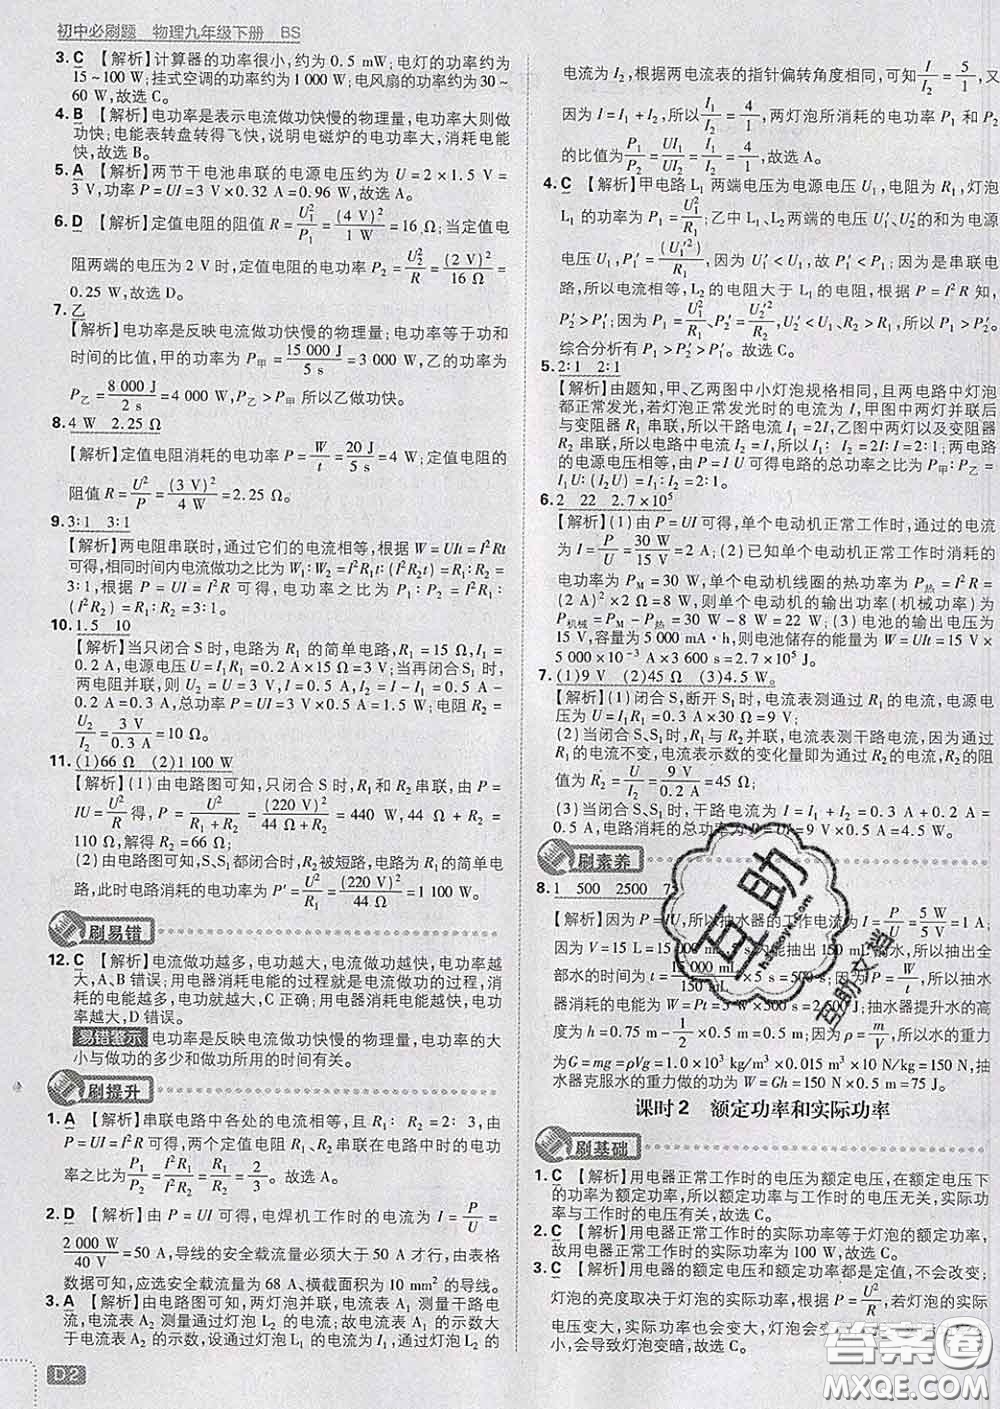 初中必刷题 物理九年级下册 BS
3. C 【解析】计算器的功率很小,约为 0.5 mW;电灯的功率约为
15～100 W;挂式空调的功率约为 1 000 W;电风扇的功率约为 30～
60 W,故选 C。
4. B 【解析】电功率是表示电流做功快慢的物理量,电功率大则做
功快;电能表转盘转得飞快,说明电磁炉的电功率大,消耗电能
快,故选 B。
5. A 【解析】两节干电池串联的电源电压约为 U = 2 × 1.5 V =
3 V,功率 P = UI = 3 V × 0.32 A = 0.96 W,故选 A。
6. D 【解析】定值电阻的阻值 R = U₁²/P₁ = (4 V)²/1 W = 16 Ω,当定值电
阻两端的电压为 2 V 时,定值电阻的电功率 P₂ = U₂²/R = (2 V)²/16 Ω =
0.25 W,故选 D。
7. 乙
【解析】电功率是反映电流做功快慢的物理量;电功率等于功和
时间的比值,甲的功率为 P甲 = 15 000 J/5 s = 3 000 W,乙的功率为
P乙 = 8 000 J/2 s = 4 000 W,P乙 > P甲,所以乙做功快。
8. 4 W 2.25 Ω
【解析】定值电阻消耗的电功率 P = W/t = 20 J/5 s = 4 W;定值电阻的
阻值 R = U²/P = (3 V)²/4 W = 2.25 Ω。
9. 3∶1 3∶1
【解析】两电阻串联时,通过它们的电流相等,根据 W = UIt = I²Rt
可得,相同时间内电流做功之比为 W₁∶W₂ = I²R₁t∶(I²R₂t) = R₁∶R₂ =
3∶1,根据 P = UI = I²R 可得,电功率之比为 P₁∶P₂ = I²R₁∶
(I²R₂) = R₁∶R₂ = 3∶1。
10. 1.5 10
【解析】当只闭合 S 时,电路为 R₁ 的简单电路,R₁ = 15 Ω,I₁ =
0.2 A,电源电压 U = I₁R₁ = 0.2 A × 15 Ω = 3 V;当再闭合 S₁ 时,
两电阻并联,则 U₂ = U = 3 V,I = 0.5 A,I₂ = I − I₁ = 0.5 A −
0.2 A = 0.3 A,总功率 P = UI = 3 V × 0.5 A = 1.5 W;电阻 R₂ =
U₂/I₂ = 3 V/0.3 A = 10 Ω。
11. (1)66 Ω (2)1 100 W
【解析】(1)由电路图可知,只闭合 S 时,R₁ 和 R₂ 串联,由 P =
IU = U²/R 得,P = U²/(R₁ + R₂) = (220 V)²/(44 Ω + R₂) = 440 W,44 Ω + R₂ =
110 Ω,解得 R₂ = 66 Ω;
(2)由电路图可知,S、S₁ 都闭合时,R₂ 被短路,电路为 R₁ 的简单电
路,则此时电路消耗的电功率为 P′ = U²/R₁ = (220 V)²/44 Ω = 1 100 W。
刷易错
12. C 【解析】电流做功越多,电功率不一定越大,电流做功越快,电功率越
大,A、B 错误;用电器消耗电能的过程就是电流做功的过程,消
耗的电能越多,电流做功越多,C 正确;用电器消耗电能越快,电功
率越大,D 错误。
易错警示 电功率是反映电流做功快慢的物理量,电功率的大
小与做功的多少和做功所用的时间有关。
刷提升
1. A 【解析】串联电路中各处的电流相等,且 R₁∶R₂ = 2∶3,由
P = UI = I²R 可得,两个定值电阻 R₁、R₂ 串联在电路中时的电功
率之比为 P₁/P₂ = I²R₁/I²R₂ = R₁/R₂ = 2/3。故选 A。
2. D 【解析】由 P = UI 可得,电焊机工作时的电流为 I = P/U =
2 000 W/40 V = 50 A,导线的安全载流量必须大于 50 A 才行,由表格
数据可知,应选安全载流量为 68 A、横截面积为 10 mm² 的导线。
3. A 【解析】由电路图可知,两灯泡并联,电流表 A₁ 测量干路电
流,电流表 A₂ 测量通过灯泡 L₂ 的电流,所以电流表 A₁ 的示数大
于电流表 A₂ 的示数,设通过灯泡 L₁ 的电流为 I₁,通过灯泡 L₂ 的
D2
电流为 I₂,根据两电流表的指针偏转角度相同,可知 I/I₂ = 5/1,又
因为 I = I₁ + I₂,所以 I₁/I₂ = 4/1,两灯泡所消耗的电功率 P₁ 和 P₂
的比值为 P₁/P₂ = UI₁/UI₂ = I₁/I₂ = 4/1,故选 A。
4. C 【解析】甲电路 L₁ 两端电压为电源电压 U₁,电阻为 R₁,灯泡
L₁ 的功率为 P₁ = U₁²/R₁;乙中 L₁、L₂ 两端的电压 U₁′、U₂′的和为电源电
压,P₁′ = (U₁′)²/R₁,因为 U₁′ < U₁,故 P₁′ < P₁;因为是串联电
路,所以电流相等,L₂ 的电阻大于 L₁ 的电阻,根据 P = I²R 知,
P₂′ > P₁′;因为 P₁ = U₁²/R₁、P₂′ = U₂′²/R₂,U₂′ < U₁、R₂ > R₁,所以 P₁ > P₂′。
综合分析有 P₁ > P₂′ > P₁′。故选 C。
5. 2∶1 2∶1
【解析】由题知,甲、乙两图中小灯泡规格相同,且两电路中灯泡
都正常发光,若灯泡正常发光时的电流为 I,甲图中两灯并联后
与变阻器 R₁ 串联,所以干路电流 I₁ = 2I,乙图中两灯以及变阻器
R₂ 串联,所以电路中电流 I₂ = I,所以 I₁∶I₂ = 2I∶I = 2∶1;两电路
的电源电压相等,由 P = IU 可得电路的总功率之比为 P甲∶P乙 =
I₁U∶(I₂U) = I₁∶I₂ = 2∶1。
6. 2 22 2.7 × 10⁵
【解析】(1)由 P = UI 可得,单个电动机正常工作时,通过的电流
为 I = P/U = 30 W/15 V = 2 A;(2)已知单个电动机正常工作时消耗的
电功率为 P_M = 30 W,单个电动机线圈的热功率为 P热 = I²R =
(2 A)² × 2 Ω = 8 W,则单个电动机的输出功率(机械功率)为
P机械 = P_M − P热 = 30 W − 8 W = 22 W;(3)电池的输出电压为
15 V,容量为 5 000 mA·h,则电池储存的能量为 W = UIt = 15 V ×
5 000 × 10⁻³ A × 3 600 s = 2.7 × 10⁵ J。
7. (1)9 V (2)45 Ω (3)4.5 W。
【解析】(1)闭合 S,断开 S₁ 时,电流表测通过 R₁ 的电流,电源电
压为 U = I₁R₁ = 0.3 A × 30 Ω = 9 V;
(2)当闭合 S、S₁ 时,R₁ 与 R₂ 并联,电流表测干路电流,因为通过
R₁ 的电流不变,电流表示数的变化量即为通过 R₂ 的电流,R₂ 的阻
值为 R₂ = U/I₂ = 9 V/0.2 A = 45 Ω;
(3)当闭合 S、S₁ 时,干路电流为 I = I₁ + I₂ = 0.3 A + 0.2 A =
0.5 A,电路消耗的总功率为 P = UI = 9 V × 0.5 A = 4.5 W。
刷素养
8. 1 500 2500
【解析】因为 P = IU,所以抽水器的工作电流为 I = P/U = 5 W/5 V = 1 A,
因为 V = 15 L = 15 000 mL,所以抽出
全部水的时间为 t = 15 000 mL/150 mL × 5 s = 500 s;因为 P = W/t,所以抽水
器消耗的电能为 W = Pt = 5 W × 500 s = 2 500 J;抽水器提升水的高
度为 h = 0.75 m − 1/2 × 0.5 m = 0.5 m;因为 ρ = m/V,所以水的重力
为 G = mg = ρVg = 1.0 × 10³ kg/m³ × 15 × 10⁻³ m³ × 10 N/kg = 150 N,抽水
器克服水的重力做的功为 W = Gh = 150 N × 0.5 m = 75 J。
课时 2 额定功率和实际功率
刷基础
1. C 【解析】用电器正常工作时的电压为额定电压,在额定电压下
的功率为额定功率,所以额定功率与工作电压无关,实际功
率与工作电压有关,故选 C。
2. C 【解析】用电器正常工作时的实际功率等于灯泡的额定功率,
故用电器正常工作时的实际功率为 100 W,故选 C。
3. C 【解析】用电器的额定电压和额定功率都是定值,不会改变;
灯泡的亮度取决于灯泡的实际功率,根据 P = U²/R,若灯泡的实际
电压变大,实际功率也会变大,灯泡会变
小,会导致灯泡变暗,故选 C。
互助
互助文档
答案圈
MXQE.COM